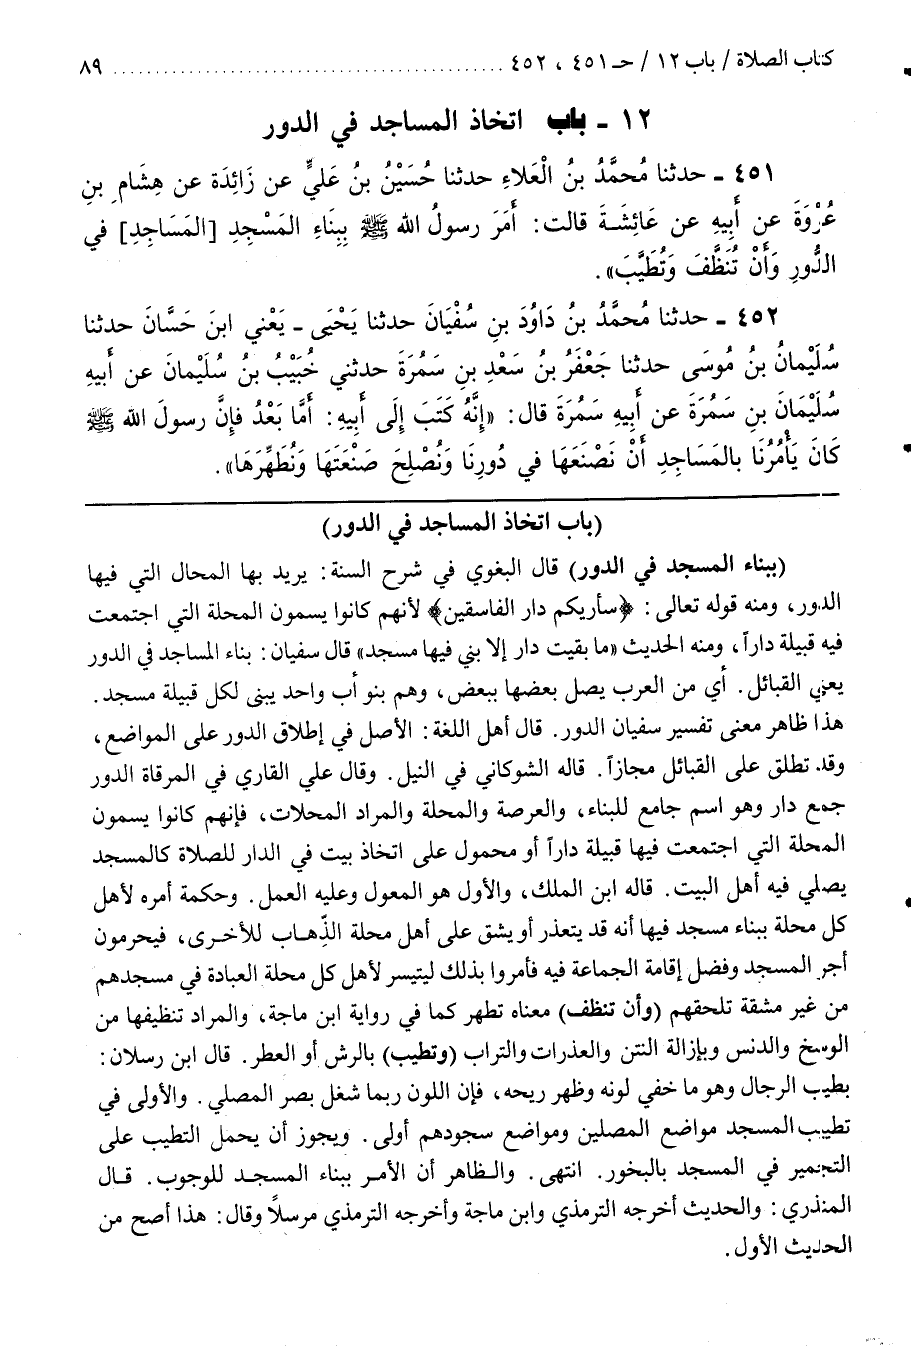 كتاب الصلاة / باب ١٢ / حـ ٤٥١ ، ٤٥٢ ........................................ ٨٩
١٢ ـ باب اتخاذ المساجد في الدور
٤٥١ ـ حدثنا مُحمَّدُ بنُ الْعَلاءِ حدثنا حُسَيْنُ بنُ عَليٍّ عن زَائِدَة عن هِشَام بنِ
عُرْوَةَ عن أَبِيهِ عن عَائِشَةَ قالت: أَمَرَ رسولُ الله ﷺ بِبِنَاءِ المَسْجِدِ [المَسَاجِدِ] في
الدُّورِ وَأَنْ تُنَظَّفَ وَتُطَيَّبَ».
٤٥٢ ـ حدثنا مُحمَّدُ بنُ دَاوُدَ بنِ سُفْيَانَ حدثنا يَحْيَى ـ يَعْني ابنَ حَسَّانَ حدثنا
سُلَيْمانُ بنُ مُوسَى حدثنا جَعْفَرُ بنُ سَعْدِ بنِ سَمُرَةَ حدثني خُبَيْبُ بنُ سُلَيْمانَ عن أَبيهِ
سُلَيْمَانَ بنِ سَمُرَةَ عن أَبيهِ سَمُرَةَ قال: «إنَّهُ كَتَبَ إلَى أَبيهِ: أَمَّا بَعْدُ فإنَّ رسولَ الله ﷺ
كَانَ يَأْمُرُنَا بالمَسَاجِدِ أَنْ نَصْنَعَهَا في دُورِنَا وَنُصْلِحَ صَنْعَتَهَا وَنُطَهِّرَهَا».
(باب اتخاذ المساجد في الدور)
(ببناء المسجد في الدور) قال البغوي في شرح السنة: يريد بها المحال التي فيها
الدور، ومنه قوله تعالى: ﴿سأريكم دار الفاسقين﴾ لأنهم كانوا يسمون المحلة التي اجتمعت
فيه قبيلة داراً، ومنه الحديث «ما بقيت دار إلا بني فيها مسجد» قال سفيان: بناء المساجد في الدور
يعني القبائل. أي من العرب يصل بعضها ببعض، وهم بنو أب واحد يبنى لكل قبيلة مسجد.
هذا ظاهر معنى تفسير سفيان الدور. قال أهل اللغة: الأصل في إطلاق الدور على المواضع،
وقد تطلق على القبائل مجازاً. قاله الشوكاني في النيل. وقال علي القاري في المرقاة الدور
جمع دار وهو اسم جامع للبناء، والعرصة والمحلة والمراد المحلات، فإنهم كانوا يسمون
المحلة التي اجتمعت فيها قبيلة داراً أو محمول على اتخاذ بيت في الدار للصلاة كالمسجد
يصلي فيه أهل البيت. قاله ابن الملك، والأول هو المعول وعليه العمل. وحكمة أمره لأهل
كل محلة ببناء مسجد فيها أنه قد يتعذر أو يشق على أهل محلة الذّهاب للأخرى، فيحرمون
أجر المسجد وفضل إقامة الجماعة فيه فأمروا بذلك ليتيسر لأهل كل محلة العبادة في مسجدهم
من غير مشقة تلحقهم (وأن تنظف) معناه تطهر كما في رواية ابن ماجة، والمراد تنظيفها من
الوسخ والدنس وبإزالة النتن والعذرات والتراب (وتطيب) بالرش أو العطر. قال ابن رسلان:
بطيب الرجال وهو ما خفي لونه وظهر ريحه، فإن اللون ربما شغل بصر المصلي. والأولى في
تطييب المسجد مواضع المصلين ومواضع سجودهم أولى. ويجوز أن يحمل التطيب على
التجمير في المسجد بالبخور. انتهى. والظاهر أن الأمر ببناء المسجد للوجوب. قال
المنذري: والحديث أخرجه الترمذي وابن ماجة وأخرجه الترمذي مرسلاً وقال: هذا أصح من
الحديث الأول.